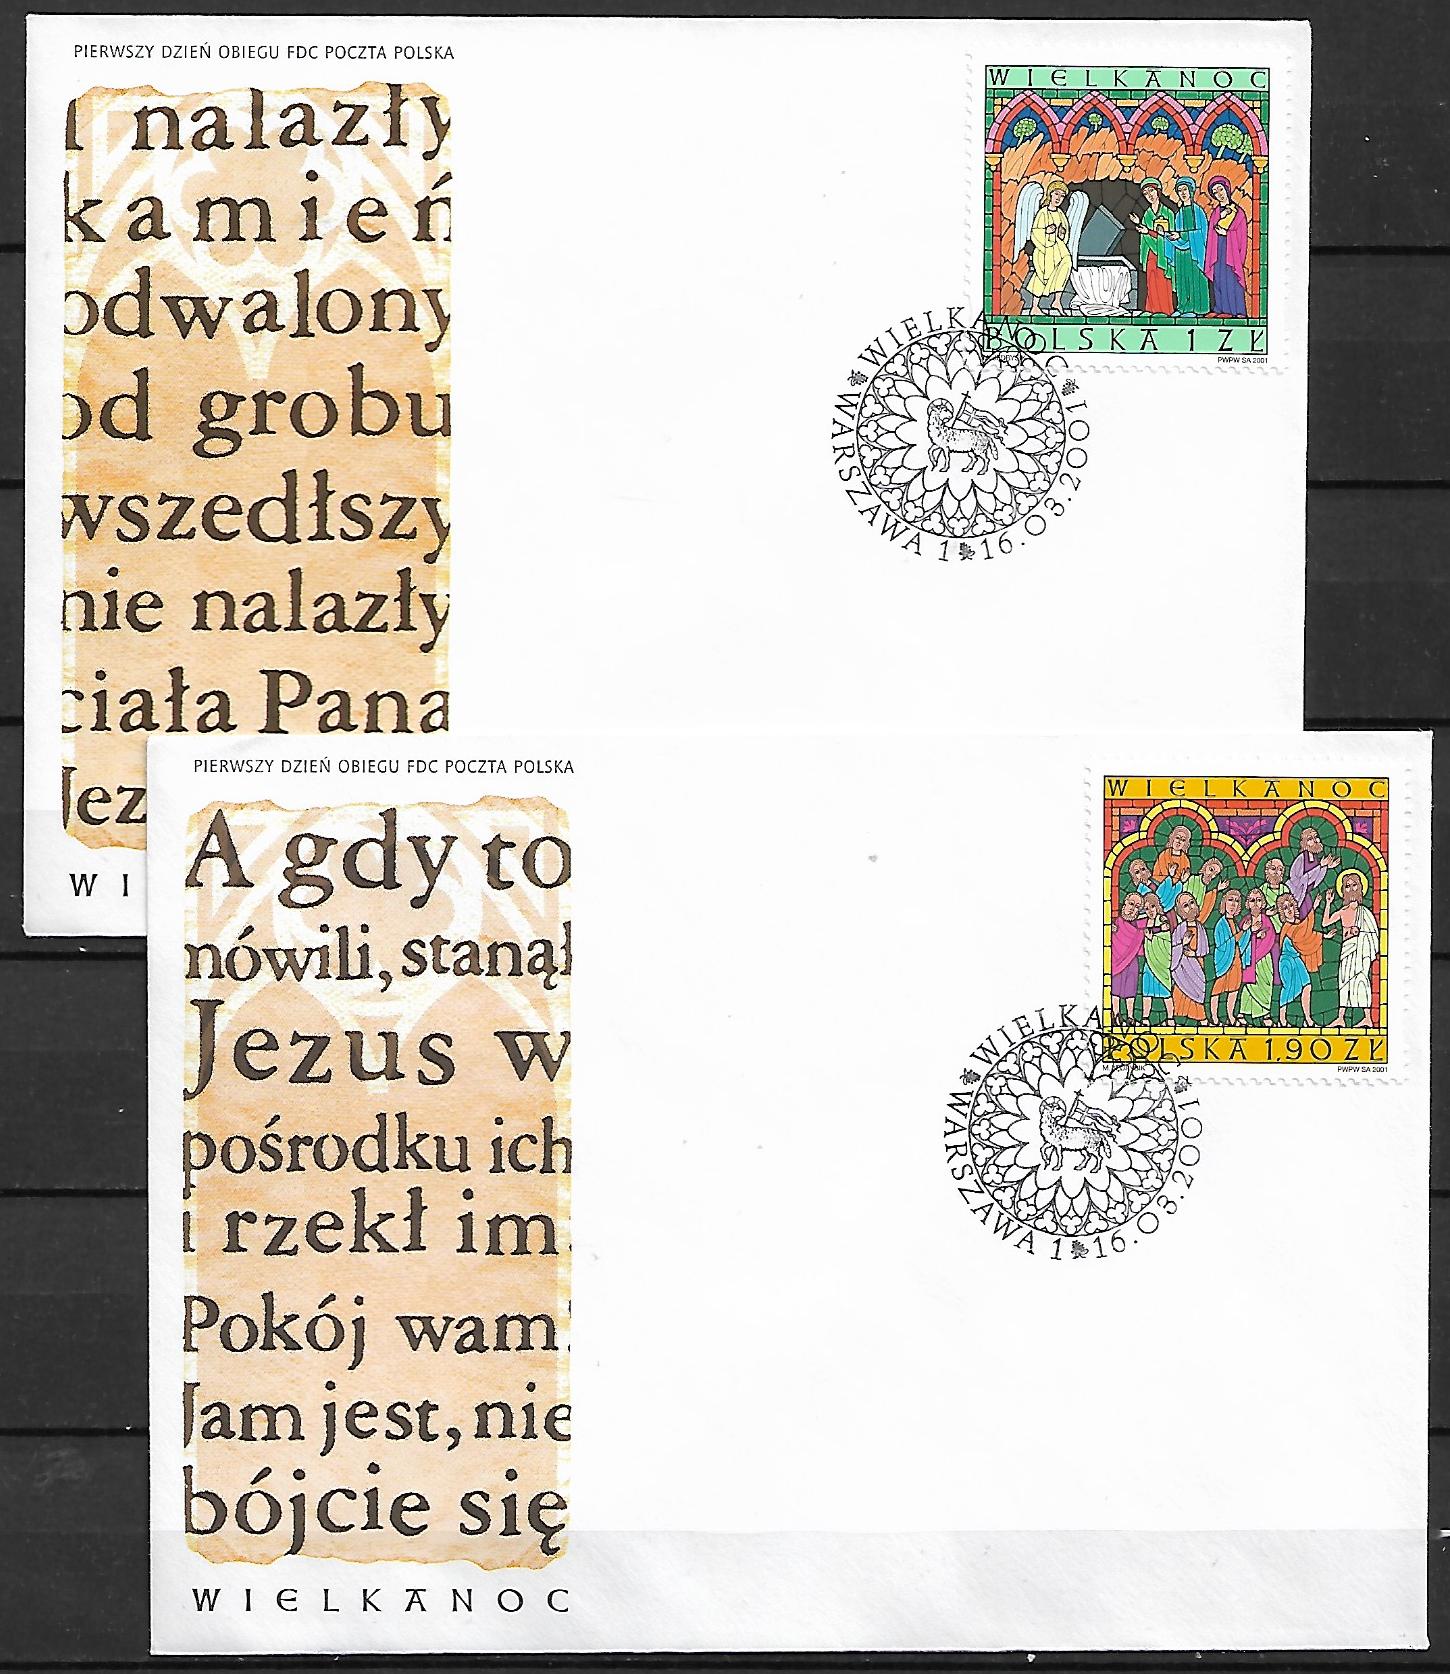 PIERWSZY DZIEŃ OBIEGU FDC POCZTA POLSKA
I nalazły
kamień
odwalony
od grobu
wszedłszy
nie nalazły
ciała Pana
Jez
WI
WIELKANOC
POLSKA 1 ZŁ
PWPW SA 2001
WIELKANOC
WARSZAWA 1 16.03.2001
PIERWSZY DZIEŃ OBIEGU FDC POCZTA POLSKA
A gdy to
mówili, stanął
Jezus w
pośrodku ich
i rzekł im:
Pokój wam!
Jam jest, nie
bójcie się
WIELKANOC
WIELKANOC
POLSKA 1,90 ZŁ
PWPW SA 2001
WIELKANOC
WARSZAWA 1 16.03.2001